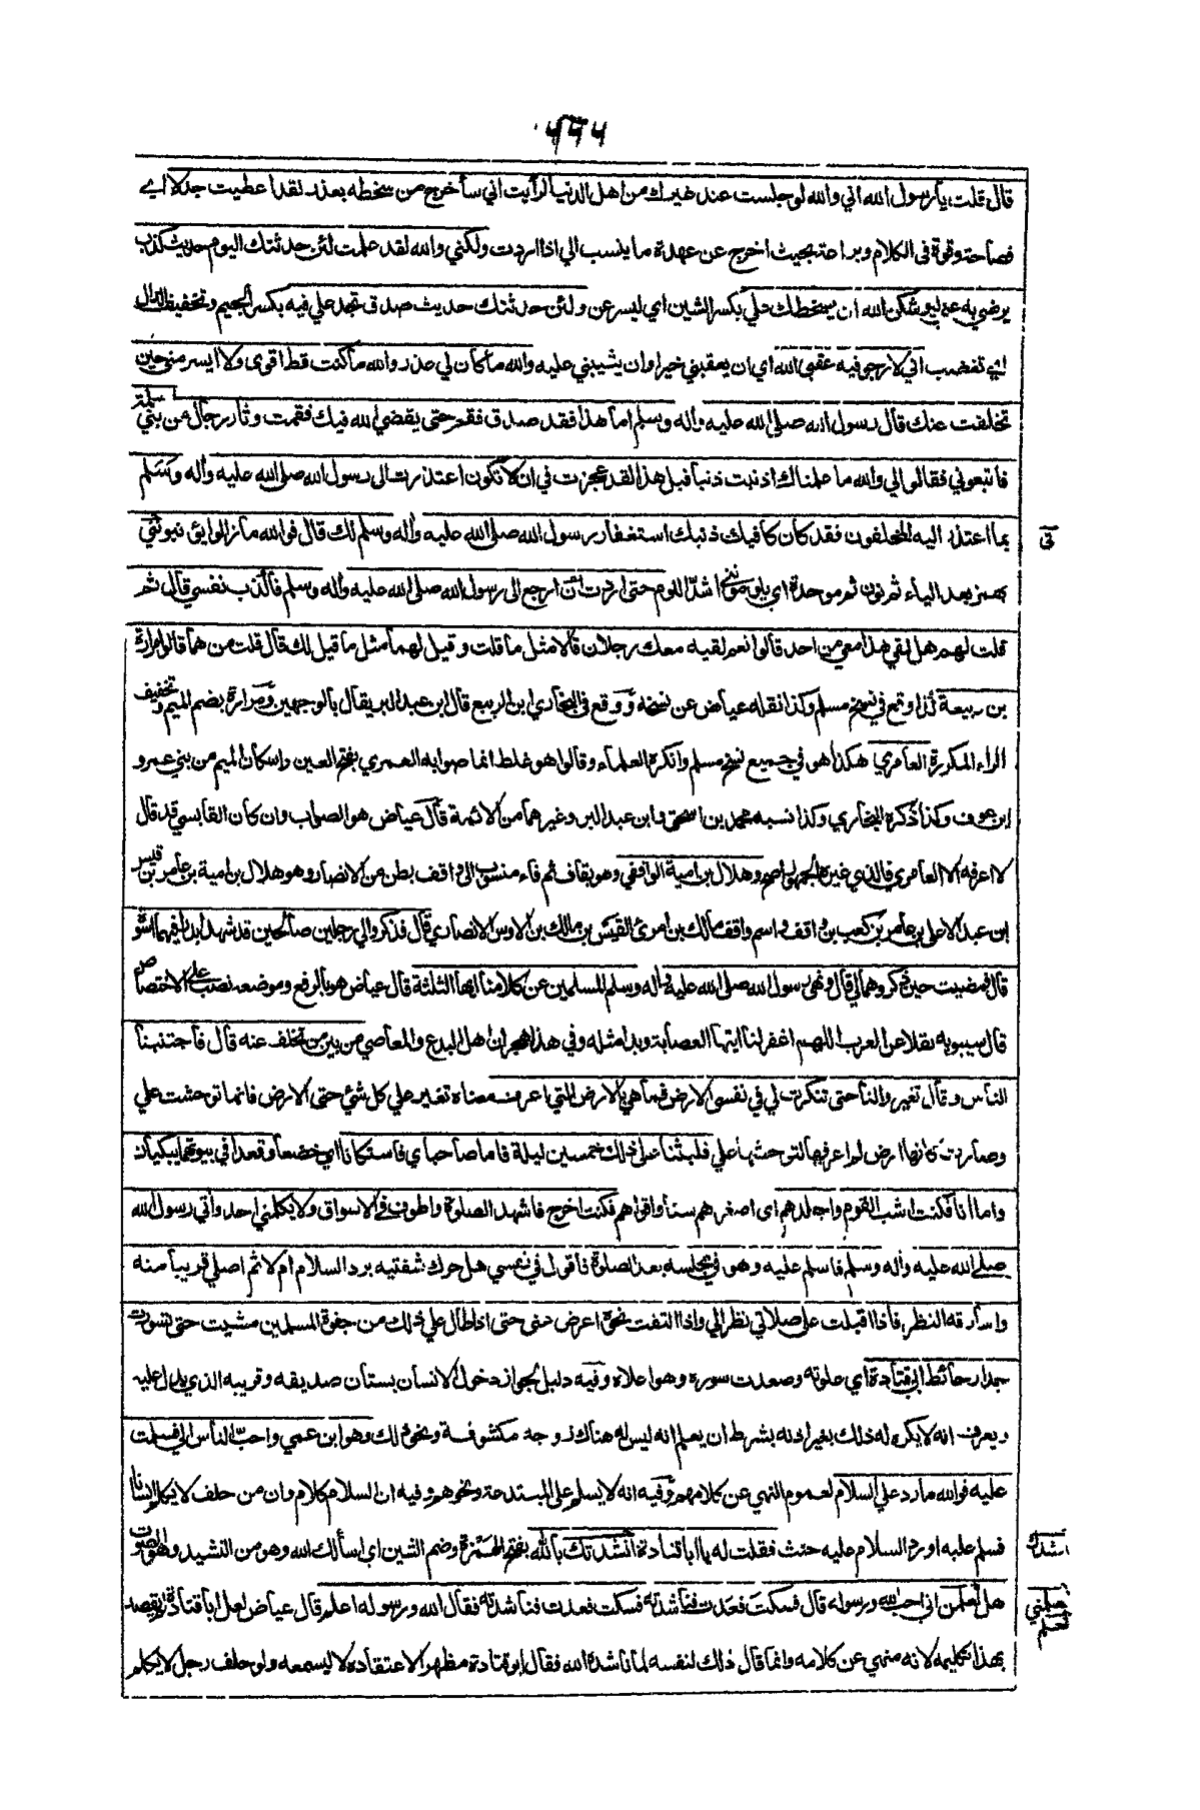 قال قلت يا رسول الله اني والله لو جلست عند غيرك من اهل الدنيا لرأيت اني سأخرج من سخطه بعذر لقد اعطيت جدلا اي
فصاحة وقوة في الكلام وبراعة بحيث اخرج عن عهدة ما ينسب الي اذا اردت ولكني والله لقد علمت لئن حدثتك اليوم حديث كذب
يرضي به عني ليوشكن الله ان يسخطك علي بكسر الشين اي ليسرعن ولئن حدثتك حديث صدق تجد علي فيه بكسر الجيم وتخفيف الدال
اي تغضب اني لارجو فيه عقبى الله اي ان يعقبني خيرا وان يثيبني عليه والله ما كان لي عذر والله ما كنت قط اقوى ولا ايسر مني حين
تخلفت عنك قال رسول الله صلى الله عليه واله وسلم اما هذا فقد صدق فقم حتى يقضي الله فيك فقمت وثار رجال من بني سلمة
فاتبعوني فقالوا لي والله ما علمناك اذنبت ذنبا قبل هذا لقد عجزت في ان لا تكون اعتذرت الى رسول الله صلى الله عليه واله وسلم
بما اعتذر اليه المخلفون فقد كان كافيك ذنبك استغفار رسول الله صلى الله عليه واله وسلم لك قال فوالله ما زالوا يؤنبونني
بهمز بعد الياء ثم نون ثم موحدة اي يلومونني اشد اللوم حتى اردت ان ارجع الى رسول الله صلى الله عليه واله وسلم فاكذب نفسي قال ثم
قلت لهم هل لقي هذا معي من احد قالوا نعم لقيه معك رجلان قالا مثل ما قلت وقيل لهما مثل ما قيل لك قال قلت من هما قالوا مرارة
بن ربيعة كذا وقع في نسخ مسلم وكذا نقله عياض عن نسخه ووقع في البخاري ابن الربيع قال ابن عبد البر يقال بالوجهين ومرارة بضم الميم وتخفيف
الراء المكررة العامري هكذا هو في جميع نسخ مسلم وانكره العلماء وقالوا هو غلط انما صوابه العمري بفتح العين واسكان الميم من بني عمرو
ابن عوف وكذا ذكره البخاري وكذا نسبه محمد بن اسحق وابن عبد البر وغيرهما من الائمة قال عياض هو الصواب وان كان القابسي قد قال
لا اعرفه الا العامري فالذي غيره الجمهور اصح وهلال بن امية الواقفي وهو بقاف ثم فاء منسوب الى واقف بطن من الانصار وهو هلال بن امية بن عامر بن قيس
ابن عبد الاعلى بن عامر بن كعب بن واقف واسم واقف مالك بن امرئ القيس بن مالك بن الاوس الانصاري قال فذكروا لي رجلين صالحين قد شهدا بدرا فيهما اسوة
قال فمضيت حين ذكروهما لي قال ونهى رسول الله صلى الله عليه واله وسلم المسلمين عن كلامنا ايها الثلثة قال عياض هو بالرفع وموضعه نصب على الاختصاص
قال سيبويه نقلا عن العرب اللهم اغفر لنا ايتها العصابة وهذا مثله وفي هذا هجران اهل البدع والمعاصي من بين من تخلف عنه قال فاجتنبنا
الناس وقال تغيروا لنا حتى تنكرت لي في نفسي الارض فما هي بالارض التي اعرف معناه تغير علي كل شئ حتى الارض فانما توحشت علي
وصارت كانها ارض لم اعرفها لتوحشها علي فلبثنا على ذلك خمسين ليلة فاما صاحباي فاستكانا اي خضعا وقعدا في بيوتهما يبكيان
واما انا فكنت اشب القوم واجلدهم اى اصغرهم سنا واقواهم فكنت اخرج فاشهد الصلوة واطوف في الاسواق ولا يكلمني احد واتي رسول الله
صلى الله عليه واله وسلم فاسلم عليه وهو في مجلسه بعد الصلوة فاقول في نفسي هل حرك شفتيه برد السلام ام لا ثم اصلي قريبا منه
واسارقه النظر فاذا اقبلت على صلاتي نظر الي واذا التفت نحوه اعرض عني حتى اذا طال علي ذلك من جفوة المسلمين مشيت حتى تسورت
جدار حائط ابي قتادة اي علوته وصعدت سوره وهو اعلاه وفيه دليل لجواز دخول الانسان بستان صديقه وقريبه الذي يدل عليه
ويعرف انه لا يكره له ذلك بغير اذنه بشرط ان يعلم انه ليس له هناك زوجة مكشوفة ونحو ذلك وهو ابن عمي واحب الناس الي فسلمت
عليه فوالله ما رد علي السلام لعموم النهي عن كلامهم وفيه انه لا يسلم على المبتدعة ونحوهم وفيه ان السلام كلام وان من حلف لا يكلم انسانا
فسلم عليه او رد السلام عليه حنث فقلت له يا ابا قتادة انشدتك بالله بفتح الهمزة وضم الشين اي اسألك الله وهو من النشيد وهو الصوت
هل تعلمن اني احب الله ورسوله قال فسكت فعدت فناشدته فسكت فعدت فناشدته فقال الله ورسوله اعلم قال عياض لعل ابا قتادة لم يقصد
بهذا تكليمه لانه منهي عن كلامه وانما قال ذلك لنفسه لما ناشده الله فقال ابو قتادة مظهرا لاعتقاده لا ليسمعه ولو حلف رجل لا يكلم